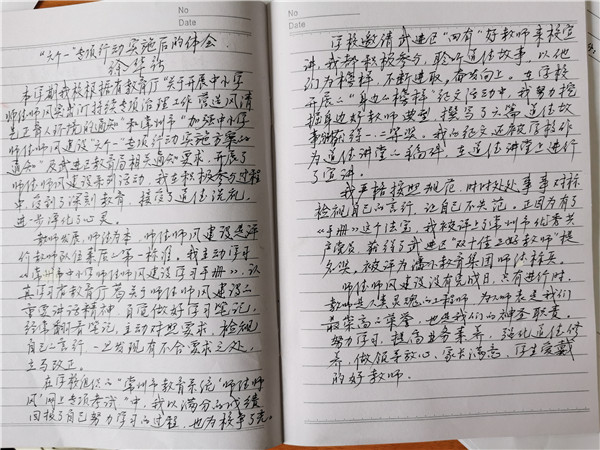 No
Date
“六个一”专项行动实施后的体会
徐华
本学期我校根据省教育厅“关于开展中小学
师德师风突出问题专项治理工作 营造风清
气正育人环境的通知”和常州市“加强中小学
师德师风建设‘六个一’专项行动实施方案的
通知”及武进区教育局相关通知要求，开展了
师德师风建设系列活动，我在积极参与过程
中受到了深刻教育，接受了道德洗礼，
进一步净化了心灵。
教师发展，师德为本，师德师风建设是评
价教师队伍素质的第一标准。我主动学习
《常州市中小学师德师风建设学习手册》，认
真学习省教育厅等关于师德师风建设的
重要讲话精神，自觉做好学习笔记，
经常翻看笔记，主动对照要求，检视
自己的言行，一旦发现有不合要求之处，
立马改正。
在学校组织的“常州市教育系统‘师德师
风’网上专项考试”中，我以满分的成绩
回报了自己努力学习的过程，也为校争了光。
No
Date
学校邀请武进区“四有”好教师来校宣
讲，我都积极参与，聆听道德故事，以他
们为榜样，不断进取，奋发向上。在学校
开展的“身边的榜样”征文活动中，我努力挖
掘身边好教师的典型，撰写了六篇道德故
事，获一、二等奖。我的征文还被学校作
为道德讲堂的底稿，在道德讲堂上进行
了宣讲。
我严格按照规范，时时处处事事对标
检视自己的言行，让自己不失范。正因为有了
《手册》这个法宝，我被评上了常州市优秀共
产党员，获得了武进区“双十佳”的好教师”提
名奖，被评为湖塘教育集团师德标兵。
师德师风建设没有完成日，只有进行时，
教师是人类灵魂的工程师，为人师表是我们
最崇高的荣誉，也是我们的神圣职责。
努力学习，提高业务素养，强化道德修
养，做领导放心、家长满意、学生爱戴
的好教师。